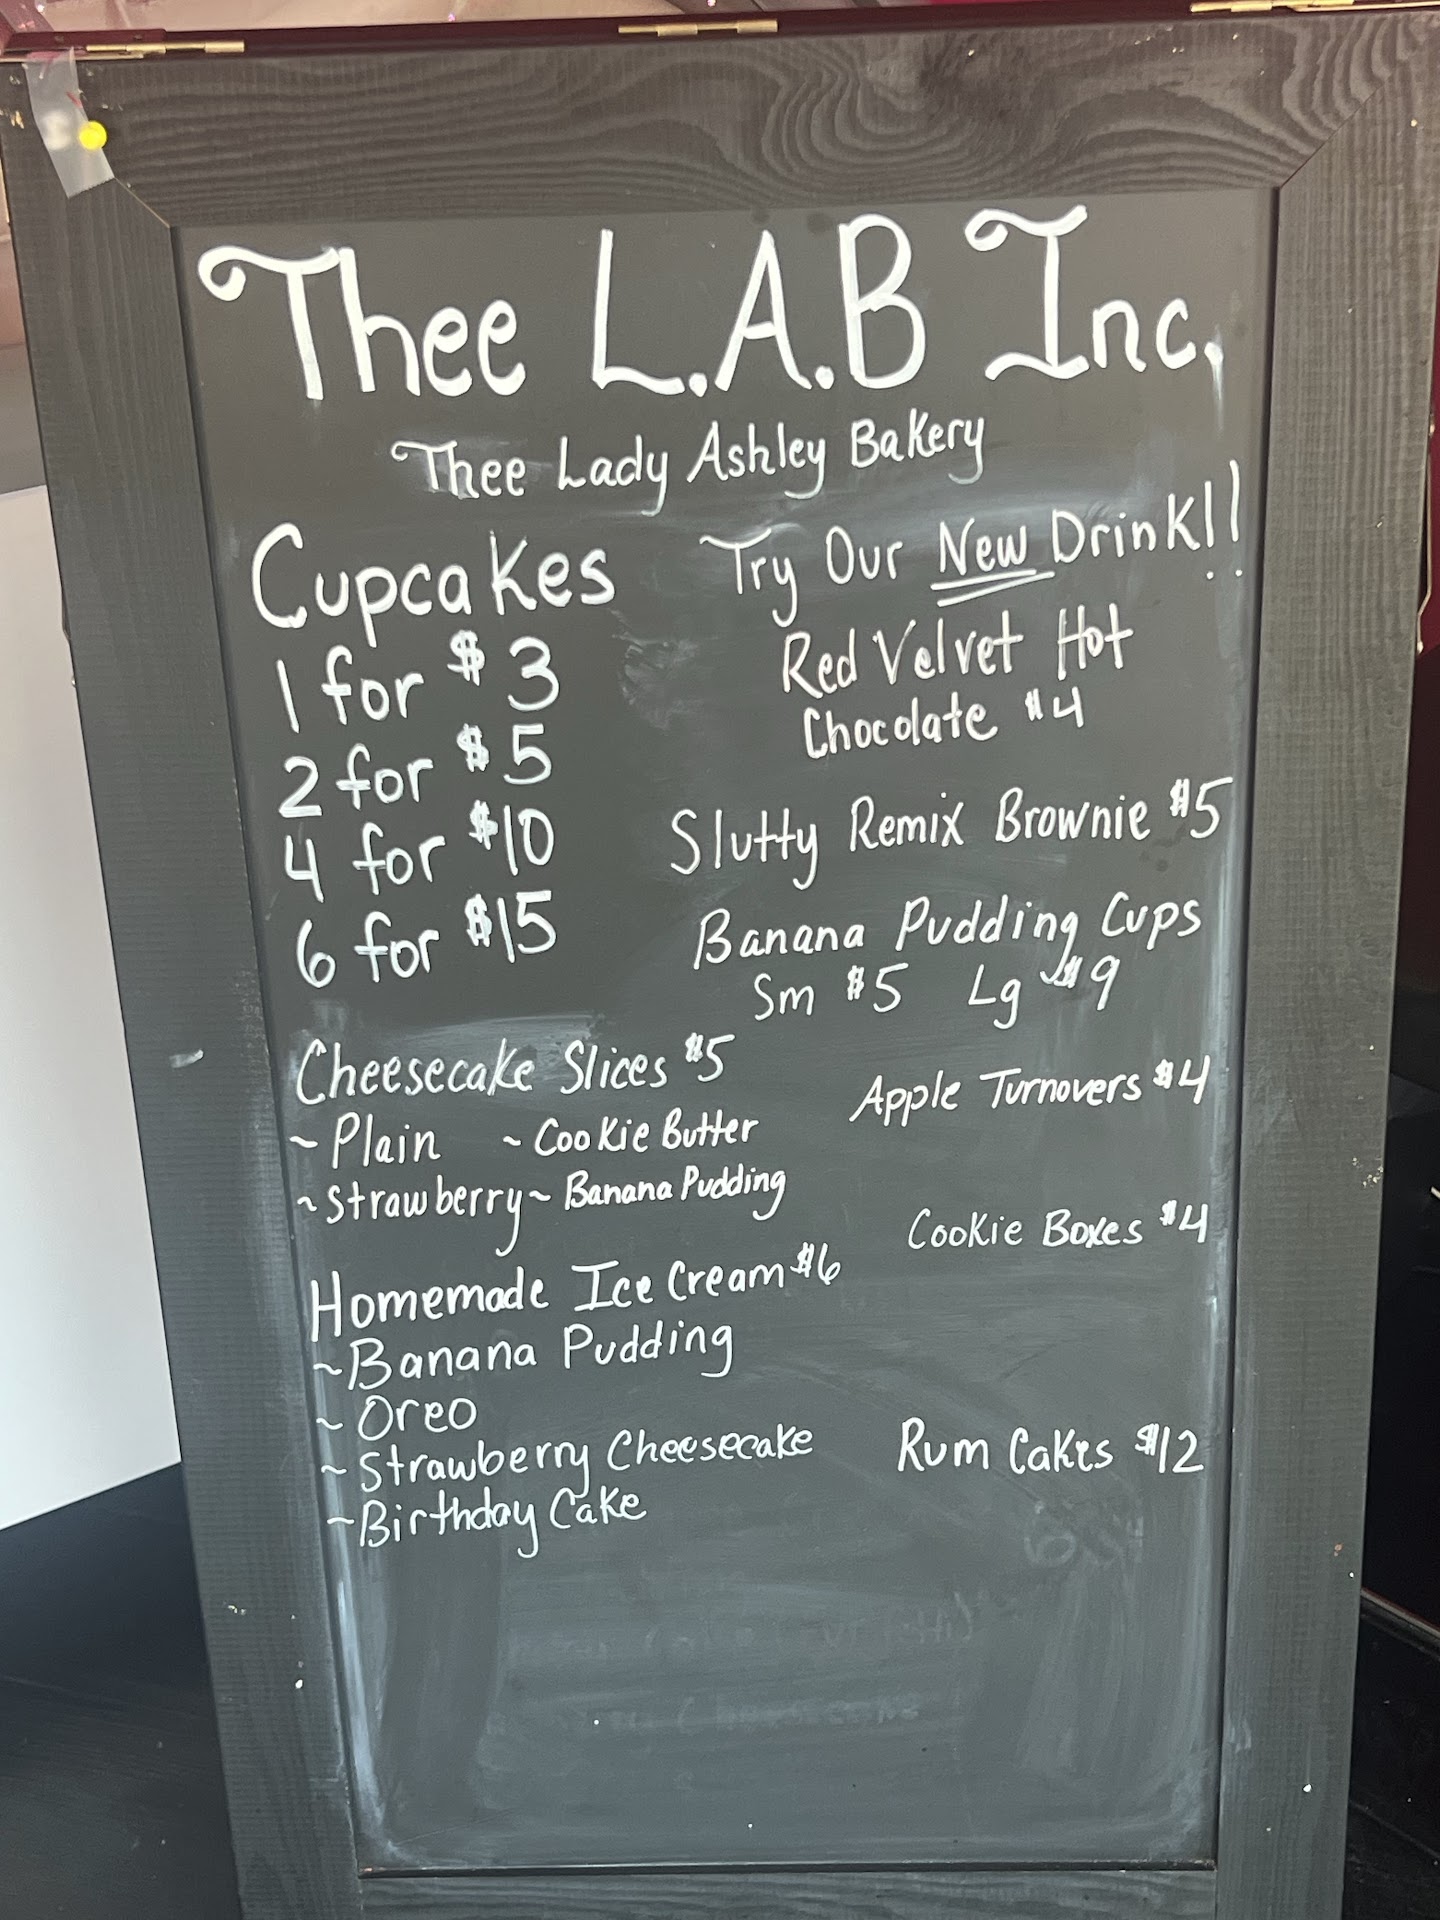 Thee L.A.B Inc.
Thee Lady Ashley Bakery
Cupcakes
1 for $3
2 for $5
4 for $10
6 for $15
Try Our New Drink!!
Red Velvet Hot
Chocolate $4
Slutty Remix Brownie $5
Banana Pudding Cups
Sm $5 Lg $9
Cheesecake Slices $5
~Plain ~Cookie Butter
~Strawberry ~Banana Pudding
Apple Turnovers $4
Cookie Boxes $4
Homemade Ice Cream $6
~Banana Pudding
~Oreo
~Strawberry Cheesecake
~Birthday Cake
Rum Cakes $12